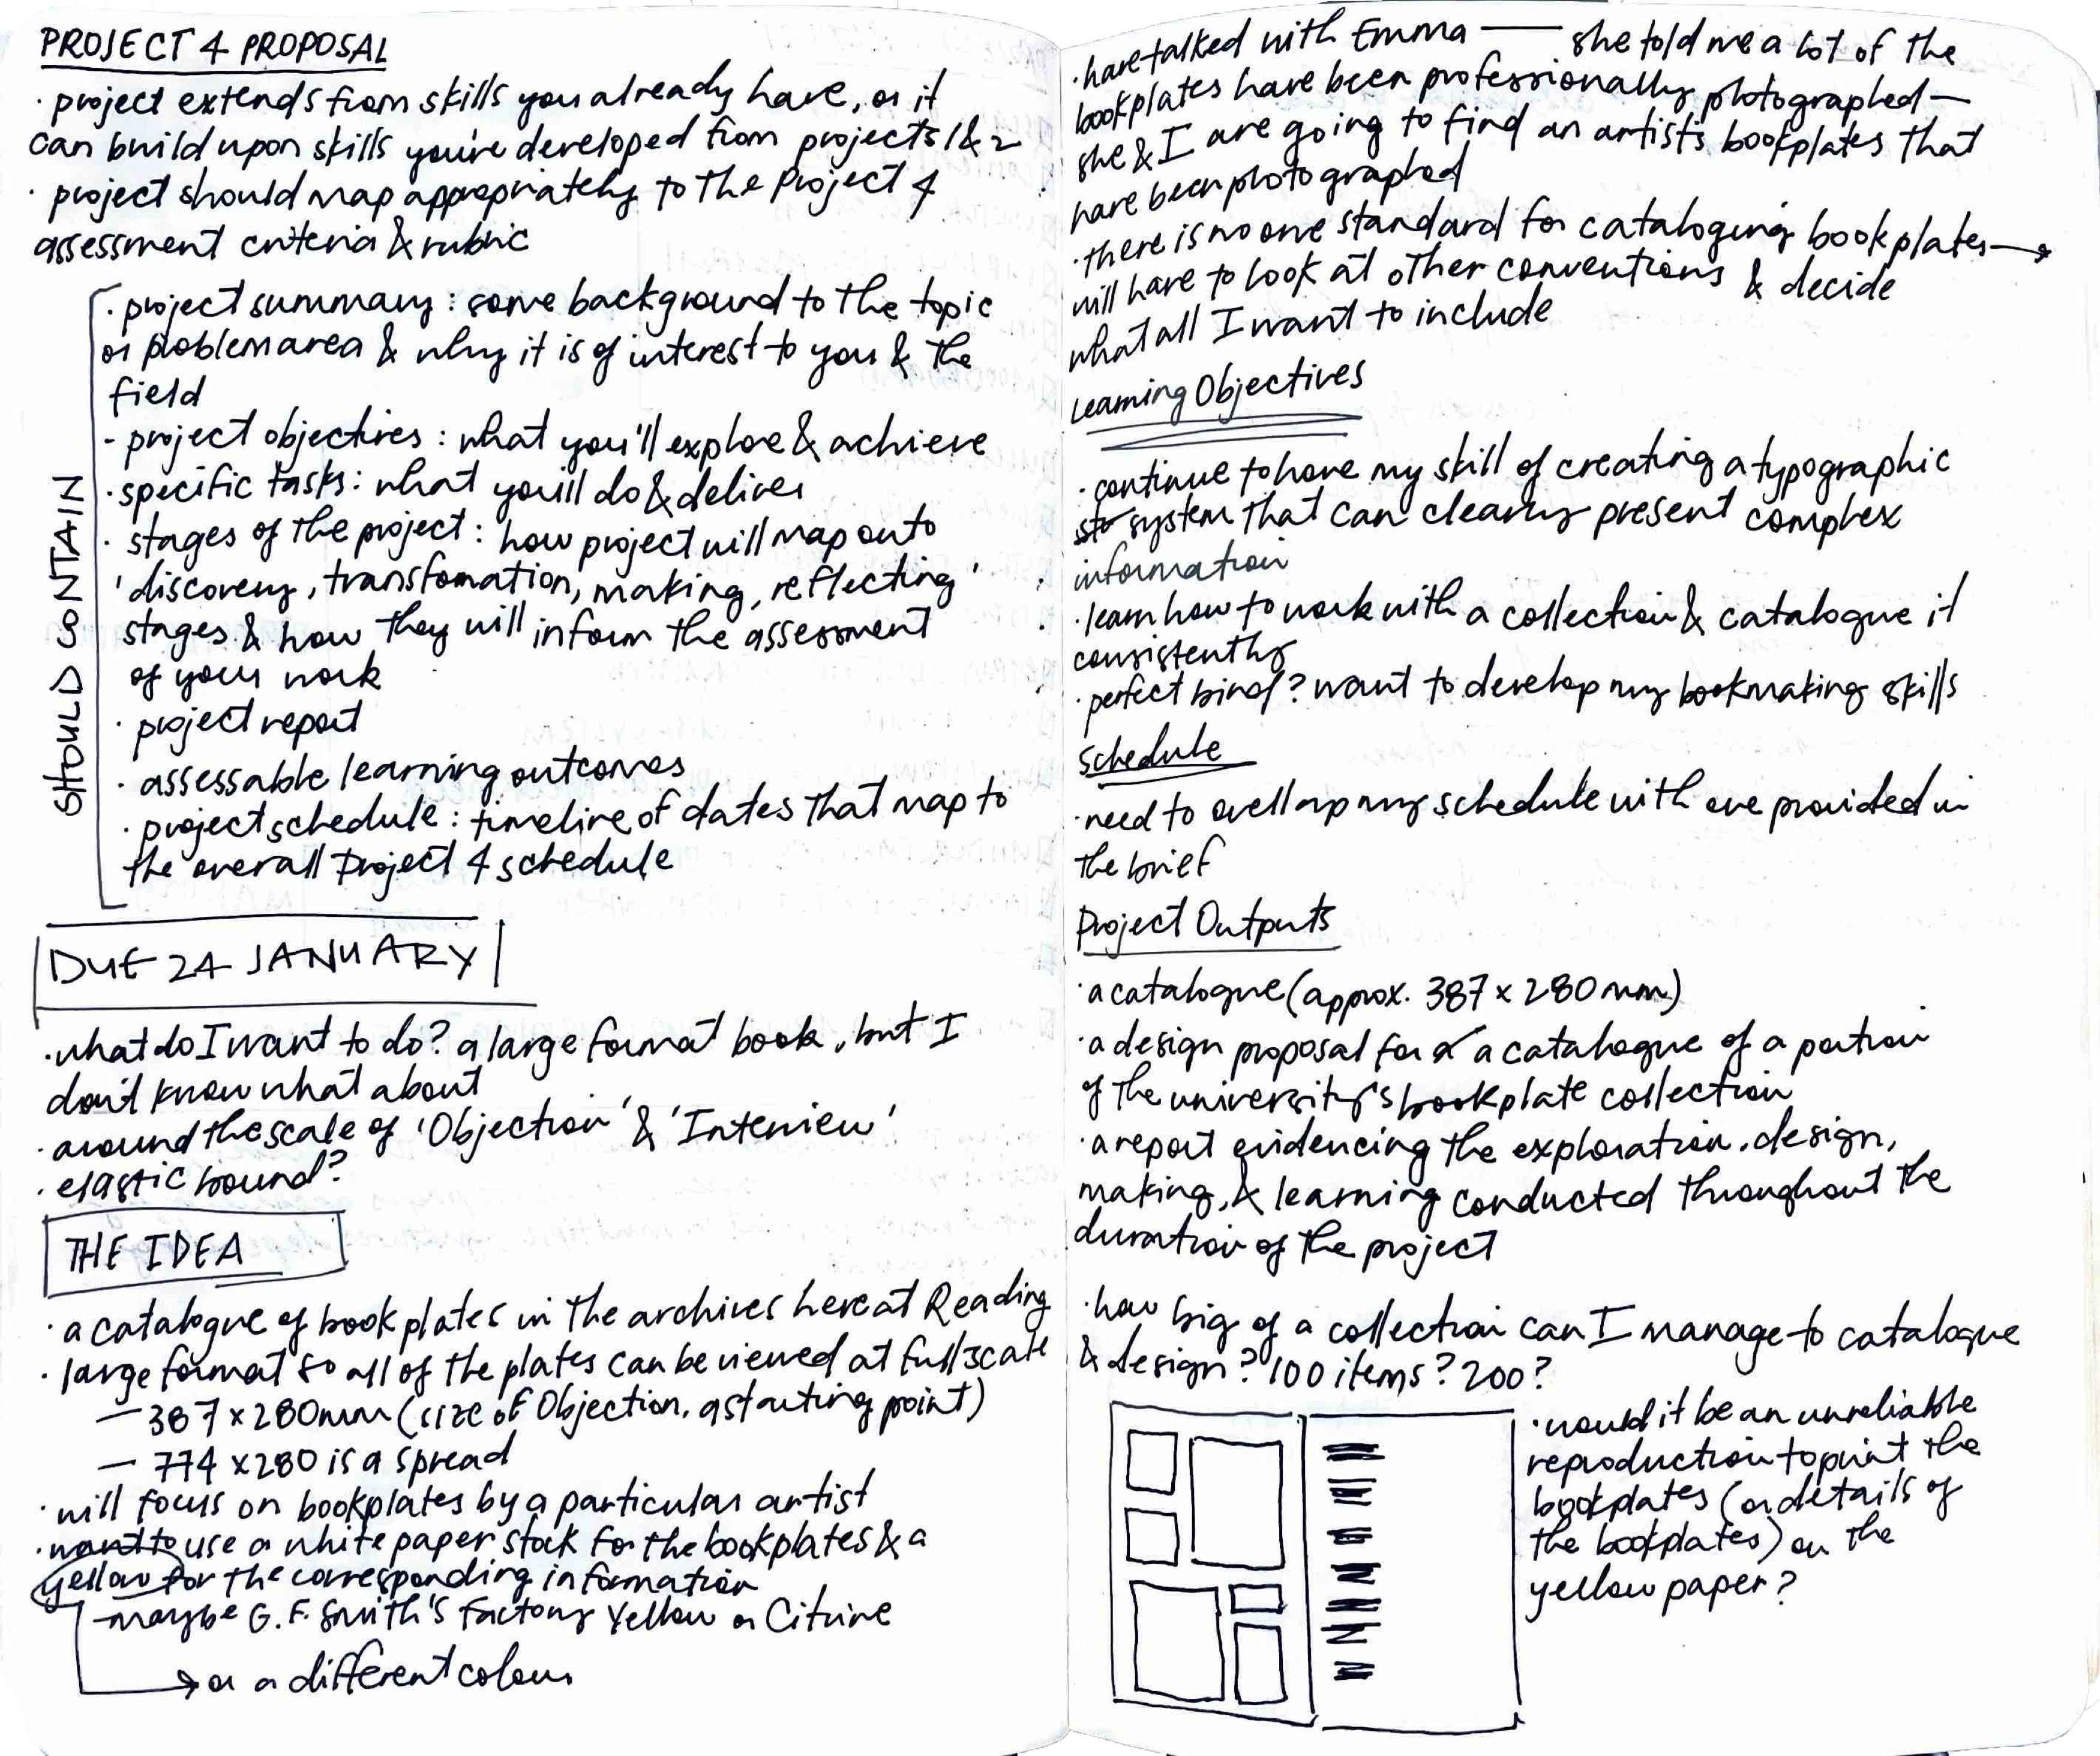 PROJECT 4 PROPOSAL
· project extends from skills you already have, or it
can build upon skills you've developed from projects 1 & 2
· project should map appropriately to the Project 4
assessment criteria & rubric
SHOULD CONTAIN
· project summary: some background to the topic
or problem area & why it is of interest to you & the
field
- project objectives: what you'll explore & achieve
· specific tasks: what you'll do & deliver
· stages of the project: how project will map onto
'discovery, transfomation, making, reflecting'
stages & how they will inform the assessment
of your work
· project report
· assessable learning outcomes
· project schedule: timeline of dates that map to
the overall Project 4 schedule
DUE 24 JANUARY
· what do I want to do? a large format book, but I
don't know what about
· around the scale of 'Objection' & 'Interview'
· elastic bound?
THE IDEA
· a catalogue of bookplates in the archives here at Reading
· large format so all of the plates can be viewed at full scale
— 387 x 280mm (size of Objection, a starting point)
— 774 x 280 is a spread
· will focus on bookplates by a particular artist
· want to use a white paper stock for the bookplates & a
yellow for the corresponding information
— maybe G.F. Smith's Factory Yellow or Citrine
→ or a different colour
· have talked with Emma — she told me a lot of the
bookplates have been professionally photographed —
she & I are going to find an artist's bookplates that
have been photographed
· there is no one standard for cataloguing bookplates →
will have to look at other conventions & decide
what all I want to include
Learning Objectives
· continue to hone my skill of creating a typographic
system that can clearly present complex
information
· learn how to work with a collection & catalogue it
consistently
· perfect bind? want to develop my bookmaking skills
Schedule
· need to overlap my schedule with one provided in
the brief
Project Outputs
· a catalogue (approx. 387 x 280mm)
· a design proposal for a catalogue of a portion
of the university's bookplate collection
· a report evidencing the exploration, design,
making, & learning conducted throughout the
duration of the project
· how big of a collection can I manage to catalogue
& design? 100 items? 200?
· would it be an unreliable
reproduction to print the
bookplates (or details of
the bookplates) on the
yellow paper?